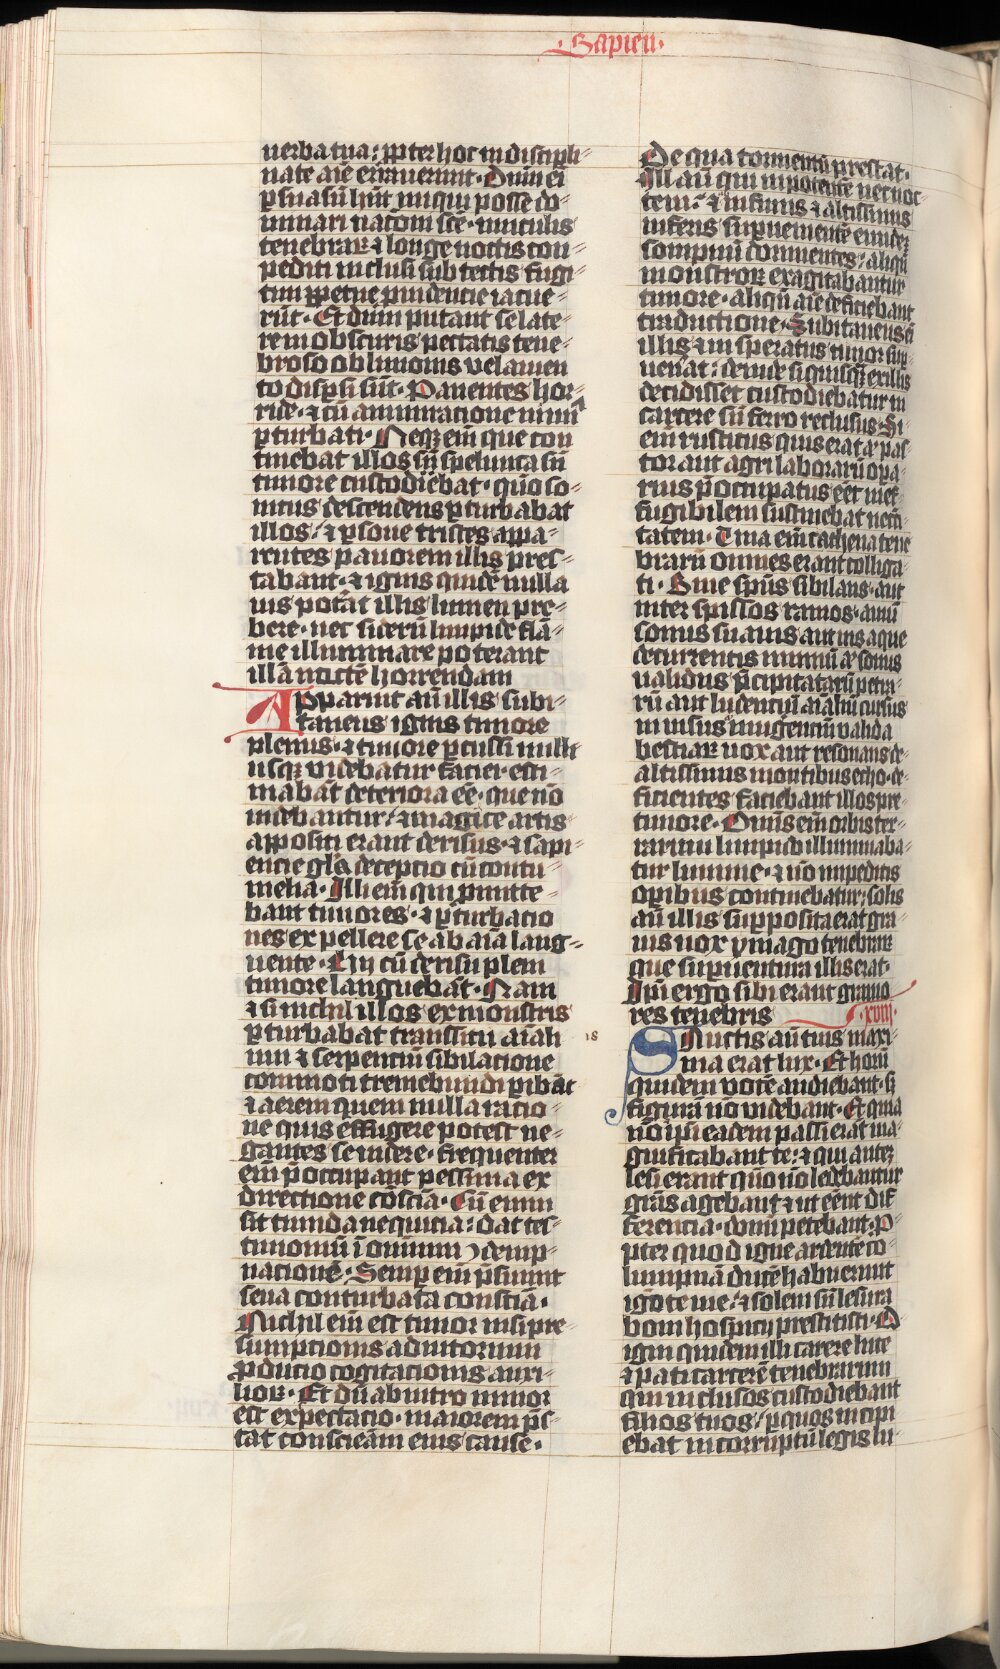 Sapien
uerba tua: ꝓpter hoc indiscipli
nate aīe errauerunt. Dum eī
ꝑsuasū hūt iniqui posse do
minari nacōni scē. uinculis
tenebraꝝ ⁊ longe noctis con
pediti inclusi sub tectis fugi
tiui ꝑpetue ꝓuidencie iacue
rūt. Et dum putant se late
re in obscuris peccatis tene
broso obliuionis uelamen
to disꝑsi sūt. Pauentes hor
ride. ⁊ cū ammiracione nimia
ꝑturbati. Neqꝫ em̄ que con
tinebat illos sn̄ spelunca sn̄
timore custodiebat. qm̄o so
nitus descendens ꝑturbabat
illos: ⁊ ꝑsone tristes appa
rentes pauorem illis pres
tabant. ⁊ ignis quidē nulla
uis potāt illis lumen pre
bere. nec siderū limpide flā
me illuminare poterant
illā noctē horrendam
Apparuit aū illis subi
taneus ignis timore
plenus. ⁊ timore ꝑcussi illi
usqꝫ uidebatur faciei. esti
mabāt deteriora eē. que nō
uidebantur: ⁊ magice artis
appositi erant derisus. ⁊ sapi
encie gl̄a decepcio cū contu
melia. Illi em̄ qui ꝓmitte
bant timores. ⁊ ꝑturbacio
nes expellere se ab aīa lang
uente. Hij cū derisu pleni
timore languebāt. Nam
⁊ si nichil illos ex monstris
ꝑturbabat transitu aīali
um ⁊ serpenciū sibilacione
commoti tremebundi ꝑibāt
⁊ aerem quem nulla racio
ne quis effugere potest ne
gantes se uidere. Frequenter
em̄ p̄occupant pessima ex
directione cōscia. Cū enim
sit timida nequicia: dat tes
timoniū ī omnium ꝯdemp
nacionē. Semꝑ em̄ p̄sumit
seua conturbata consciā.
Nichil em̄ est timor nisi pre
sumpcionis adiutorium
ꝓdicio cogitacionis auxi
lioꝝ. Et dū ab intro minor
est expectacio. maiorem p̄s
tat conscieām eius cause.
De qua tormentū prestat.
Ill aū qui inpotentē uer noc
tem: ⁊ infimis ⁊ altissimis
inferis suꝑuenientē eundeꝫ
sompnū dormientes: aliqn̄
monstroꝝ exagitabantur
timore. aliqn̄ aīe deficiebant
traductione. Subitaneus em̄
illis ⁊ insperatus timor suꝑ
uenāt: deinde si quisqꝫ ex illis
decidisset custodiebatur in
carcere sn̄ ferro reclusus. Si
em̄ rusticus quis erat aut pas
tor aut agri laborarū oꝑa
rius p̄occupatus eēt inef
fugibilem sustinebat neces
tatem. Una em̄ cathena tene
brarū omnes erant colliga
ti. Siue spūs sibilans. aut
inter spissos ramos. auiū
sonus suauis aut uis aque
decurrentis nimiū aut sonus
ualidus p̄cipitatarū petra
rū aut ludenciū aīaliū cursus
inuisus mugienciū ualida
bestiaꝝ uox aut resonans de
altissimis montibus echo. de
ficientes faciebant illos pre
timore. Omīs em̄ orbis ter
rarum limpido illuminaba
tur lumine. ⁊ nō impeditis
oꝑibus continebatur: solis
aū illis suꝑposita erat gra
uis nox ymago tenebraꝝ
que suꝑuentura illis erat.
Ipī ergo sibi erant grauio
res tenebris xviij
18
Sanctis aū tuis maxi
ma erat lux. Et horū
quidem uocē audiebant. sꝫ
figurā nō uidebant. Et quia
nō ipī eadem passi erāt ma
gnificabant te: ⁊ qui anteꝫ
lesi erant qm̄o nō ledebantur
grās agebant ⁊ ut eēnt dif
ferencia. donū petebant. Ꝓ
pter quod igne ardentē co
lumpnā ducē habuerunt
ignote uie: ⁊ solem sn̄ lesura
boni hospicij prestitisti. D
igni quidem illi carere luce
⁊ pati carcerē tenebrarum
qui inclusos custodiebant
filios tuos: ꝑ quos incipi
ebat incorruptū legis lu